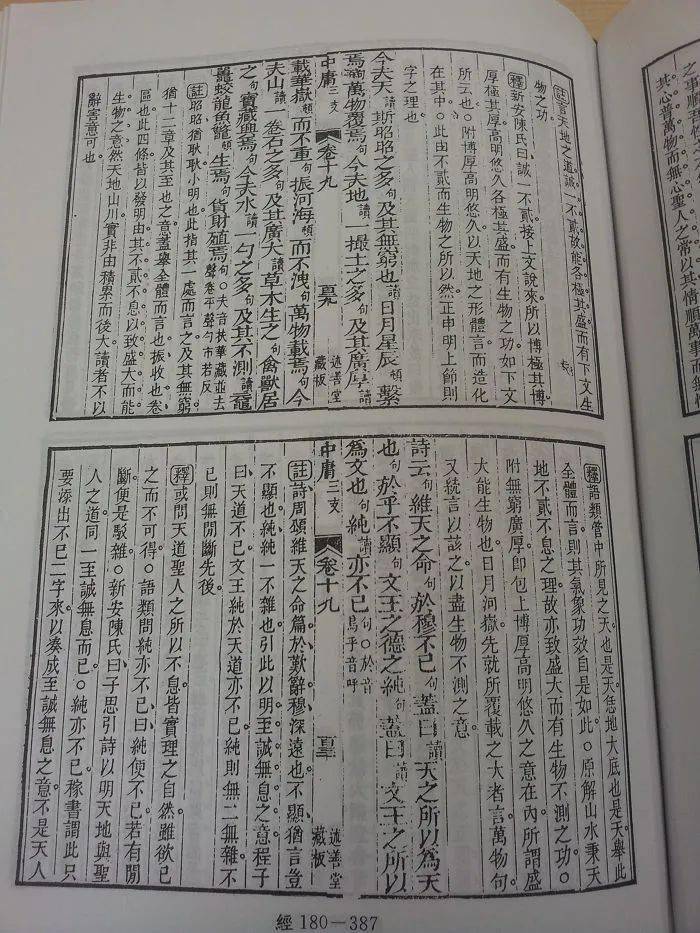 註言天地之道誠一不貳故能各極其盛而有下文生
物之功。
釋新安陳氏曰誠一不貳接上文說來所以博極其博
厚極其厚高明悠久各極其盛而有生物之功如下文
所云也○附博厚高明悠久以天地之形體言而造化
在其中○此由不貳而生物之所以然正申明上節則
字之理也
今夫天讀斯昭昭之多句及其無窮也讀日月星辰頓繫
焉句萬物覆焉句今夫地讀一撮土之多句及其廣厚讀
中庸三支 卷十九 述善堂藏板
載華嶽頓而不重句振河海頓而不洩句萬物載焉句今
夫山讀一卷石之多句及其廣大讀草木生之句禽獸居
之句寶藏興焉句今夫水讀一勺之多句及其不測讀黿
鼉蛟龍魚鼈頓生焉句貨財殖焉句○夫音扶華藏並去聲卷平聲勺市若反
註昭昭猶耿耿小明也此指其一處而言之及其無窮
猶十二章及其至也之意蓋舉全體而言也振收也卷
區也此四條皆以發明由其不貳不息以致盛大而能
生物之意然天地山川實非由積累而後大讀者不以
辭害意可也。
釋語類管中所見之天也是天恁地大底也是天舉此
全體而言則其氣象功效自是如此○原解山水秉天
地不貳不息之理故亦致盛大而有生物不測之功○
附無窮廣厚即包上博厚高明悠久之意在內所謂盛
大能生物也日月河嶽先就所覆載之大者言萬物句
又統言以該之以盡生物不測之意
詩云句維天之命句於穆不已句蓋曰讀天之所以為天
也句於乎不顯句文王之德之純句蓋曰讀文王之所以
為文也句純讀亦不已句○於音烏乎音呼
中庸三支 卷十九 述善堂藏板
註詩周頌維天之命篇於歎辭穆深遠也不顯猶言豈
不顯也純純一不雜也引此以明至誠無息之意程子
曰天道不已文王純於天道亦不已純則無二無雜不
已則無間斷先後。
釋或問天道聖人之所以不息皆實理之自然雖欲已
之而不可得○語類問純亦不已曰純便不已若有間
斷便是駁雜○新安陳氏曰子思引詩以明天地與聖
人之道同一至誠無息而已○純亦不已稼書謂此只
要添出不已二字來以湊成至誠無息之意不是天人
經180－387